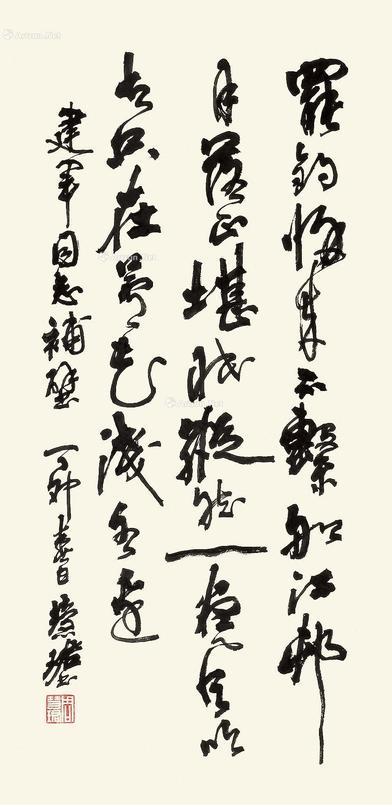 罷釣歸来不繫船江邨
月落正堪眠縱然一夜風吹
去只在蘆花淺水邊
建軍同志補壁 丁卯春日 慧珺
周慧珺
Artron.Net
Artron.Net
Artron.Net